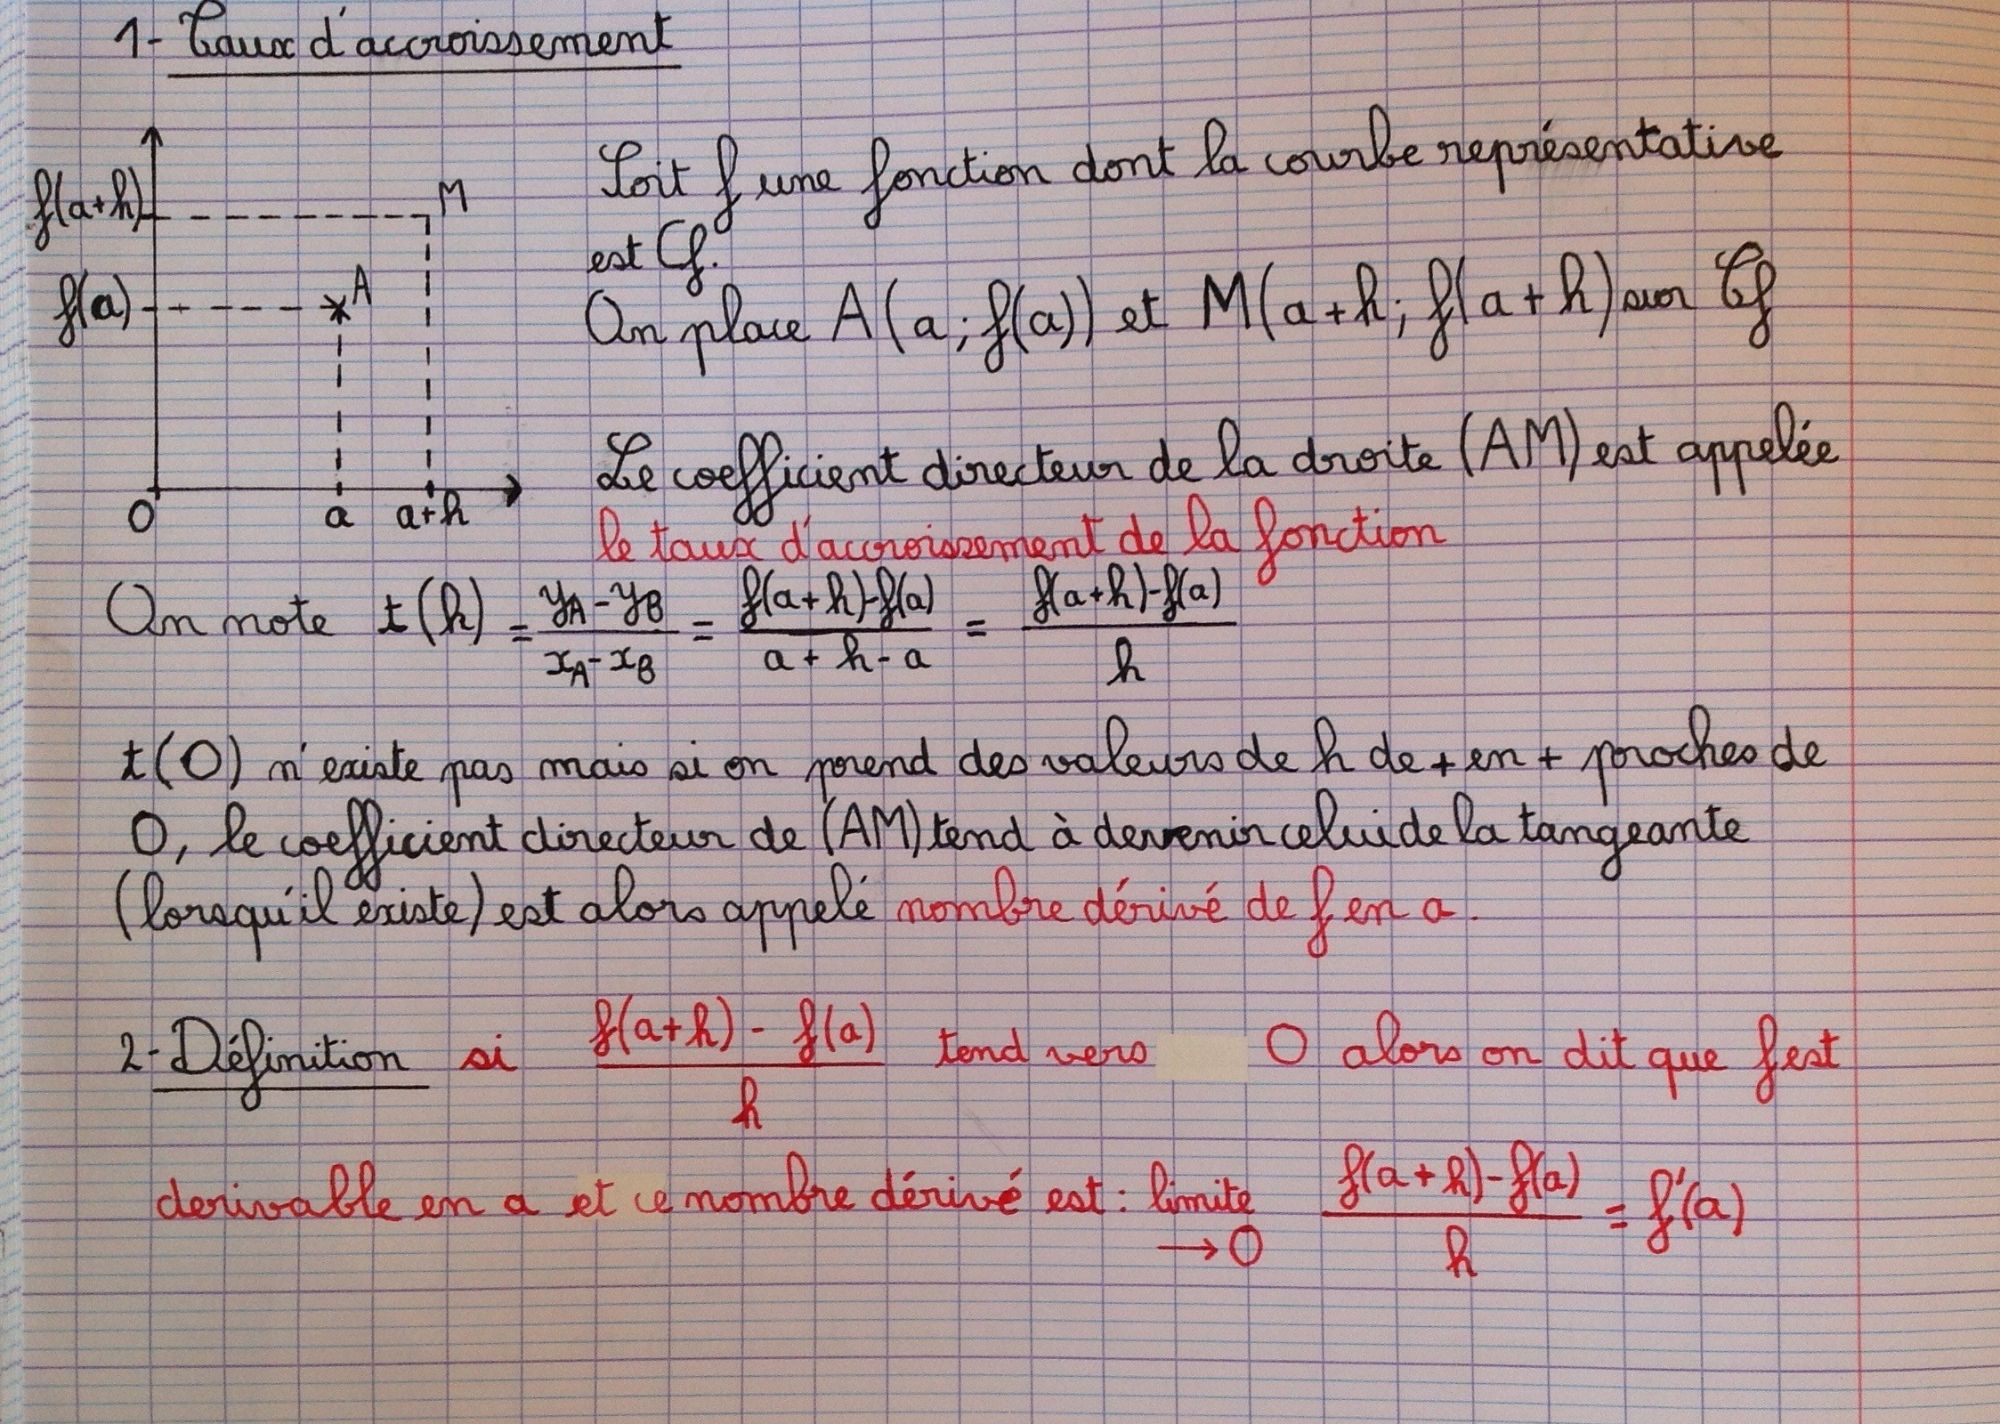 1- Taux d'accroissement
f(a+h)
M
f(a)
A
O
a
a+h
Soit f une fonction dont la courbe représentative
est Cf.
On place A(a ; f(a)) et M(a+h ; f(a+h) sur Cf
Le coefficient directeur de la droite (AM) est appelée
le taux d'accroissement de la fonction
On note t(h) = (yA - yB)/(xA - xB) = (f(a+h)-f(a))/(a+h-a) = (f(a+h)-f(a))/h
t(0) n'existe pas mais si on prend des valeurs de h de + en + proches de
0, le coefficient directeur de (AM) tend à devenir celui de la tangeante
(lorsqu'il existe) est alors appelé nombre dérivé de f en a.
2- Définition si (f(a+h) - f(a))/h tend vers 0 alors on dit que f est
derivable en a et ce nombre dérivé est : limite →0 (f(a+h)-f(a))/h = f'(a)